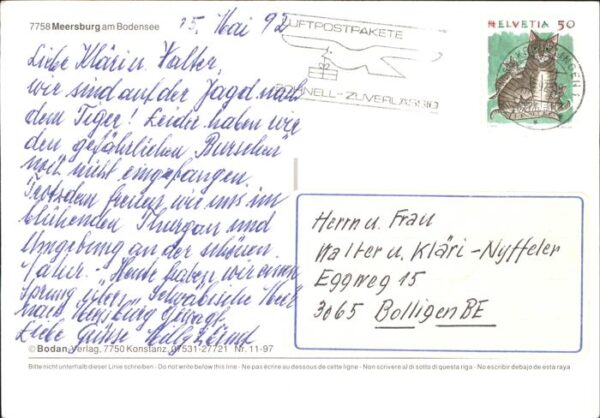 7758 Meersburg am Bodensee
15. Mai 92
LUFTPOSTPAKETE
SCHNELL - ZUVERLÄSSIG
HELVETIA 50
Liebe Kläri u Walter,
wir sind auf der Jagd nach
dem Tiger! Leider haben wir
den gefährlichen Burschen
noch nicht eingefangen.
Trotzdem freuen wir uns im
blühenden Thurgau und
Umgebung an der schönen
Natur. - Heute haben wir einen
Sprung übers Schwäbische Meer
nach Meersburg gewagt.
Liebe Grüsse
Herrn u. Frau
Walter u. Kläri-Nyffeler
Eggweg 15
3065 Bolligen BE
© Bodan-Verlag, 7750 Konstanz, 07531-27721 Nr. 11-97
Bitte nicht unterhalb dieser Linie schreiben - Do not write below this line - Ne pas écrire au dessous de cette ligne - Non scrivere al di sotto di questa riga - No escribir debajo de esta raya